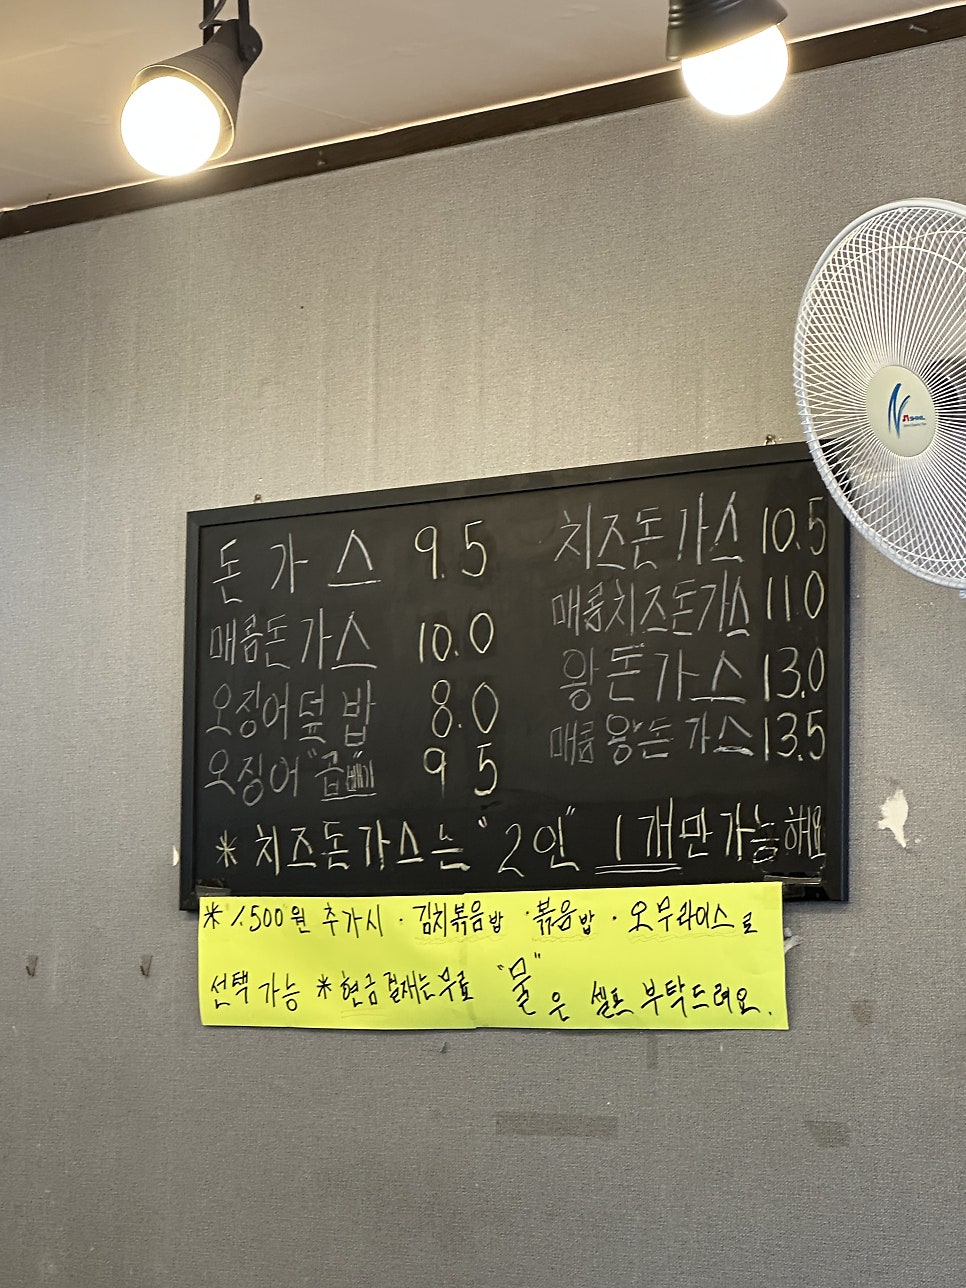 돈가스 9.5
매콤돈가스 10.0
오징어덮밥 8.0
오징어"곱빼기" 9 5
치즈돈가스 10.5
매콤치즈돈가스 11.0
왕돈가스 13.0
매콤왕돈가스 13.5
* 치즈돈가스는 "2인" 1개만 가능해요
* 1.500원 추가시 · 김치볶음밥 · 볶음밥 · 오무라이스로
선택가능 * 현금결재는무료 "물"은 셀프 부탁드려요.
SHINIL